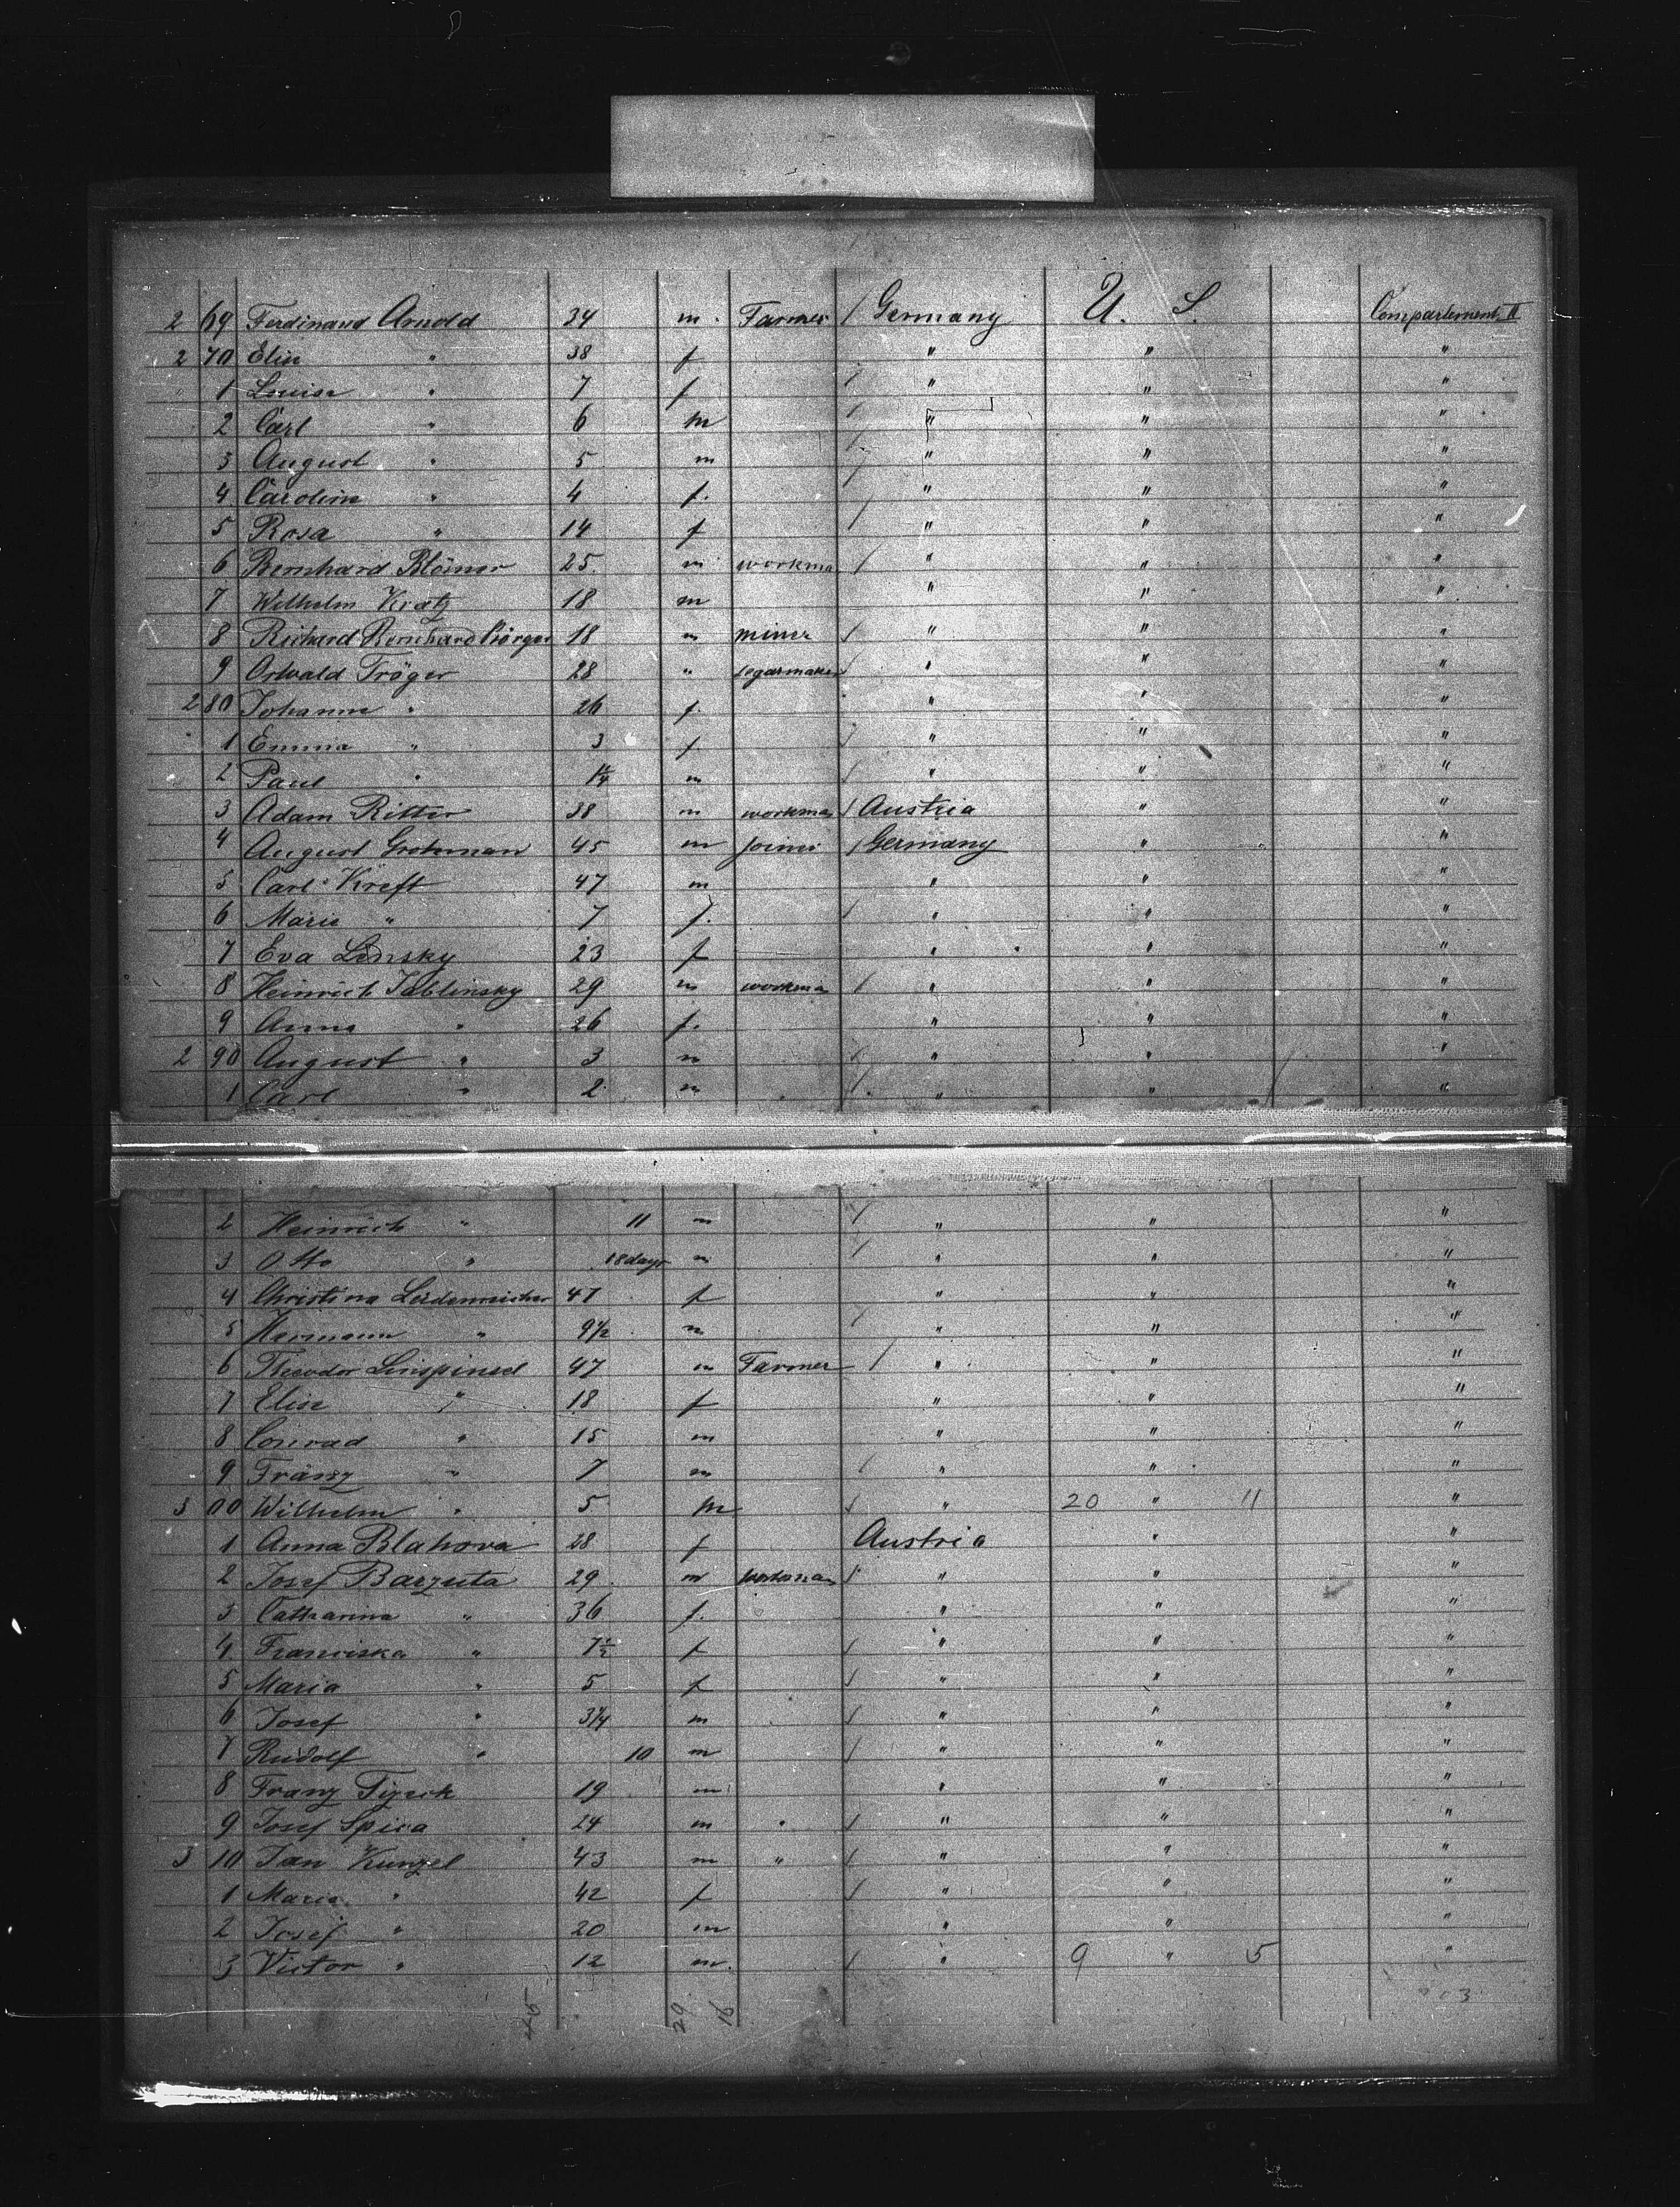 2 69 Ferdinand Arnold 34 m. Farmer / Germany U. S. Compartement II
2 70 Elise " 38 f " " "
1 Louise " 7 f / " " "
2 Carl " 6 m / " " "
3 August " 5 m / " " "
4 Caroline " 4 f. / " " "
5 Rosa " 14 f / " " "
6 Bernhard Blömer 25. m workman / " " "
7 Wilhelm Kratz 18 m " " "
8 Richard Bernhard 18 m miner / " " "
9 Oswald Tröger 28 " segarmaker / " " "
2 80 Johanne " 26 f. " " "
1 Emma " 3 f / " " "
2 Paul " m / " " "
3 Adam Ritter 38 m workman / Austria " "
4 August Grohman 45 m joiner / Germany " "
5 Carl Kreft 47 m " " "
6 Marie " 7 f. / " " "
7 Eva Linsky 23 f " " "
8 Heinrich Jablinsky 29 m workman / " " "
9 Anna " 26 f. " " "
2 90 August " 3 m / " " "
1 Carl " 2 m / " " "
2 Heinrich " 11 m / " " "
3 Otto " 18 days m / " " "
4 Christina Leidenmeister 47 f " " "
5 Hermann " 9 1/2 m / " " "
6 Theodor 47 m Farmer / " " "
7 Elise " 18 f " " "
8 Conrad " 15 m " " "
9 Franz " 7 m / " " "
3 00 Wilhelm " 5 m / " 20 " 11 "
1 Anna Blahova 28 f Austria " "
2 Josef Barzuta 29. m workman / " " "
3 Catharina " 36 f. " " "
4 Franciska " 7 1/2 f / " " "
5 Maria " 5 f / " " "
6 Josef " 3 1/4 m / " " "
7 Rudolf " 10 m / " " "
8 Franz 19 m " " "
9 Josef Spica 24 m " / " " "
3 10 Jan Kunzel 43 m " / " " "
1 Maria " 42 f / " " "
2 Josef " 20 m " " "
3 Victor " 12 m. / " 9 " 5 "
45 29 16